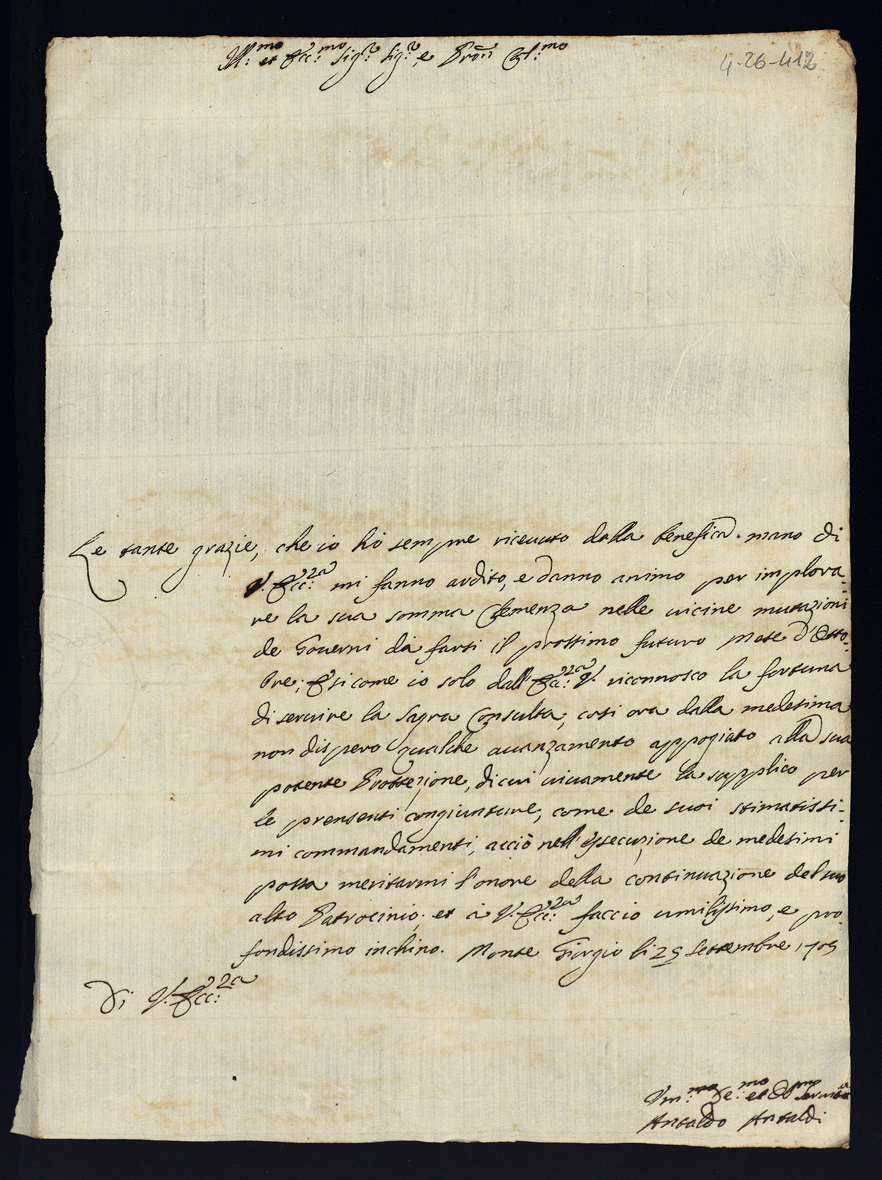 Ill:mo et Ecc:mo Sig:r Sig:r, e Pron Col:mo
4-26-412
Le tante grazie, che io hò sempre riceuuto dalla benefica mano di
V. Ecc:za mi fanno ardito, e danno animo per implora-
re la sua somma Clemenza nelle uicine mutazioni
de Gouerni da farsi il prossimo futuro Mese d'Otto-
bre; E si come io solo dall'Ecc:za V. riconnosco la fortuna
di seruire la Sagra Consulta, così ora dalla medesima
non dispero qualche auanzamento appogiato alla sua
potente Protezione, di cui uiuamente la supplico per
le prensenti congiunture, come de suoi stimatissi-
mi commandamenti, acciò nell'essecuzione de medesimi
possa meritarmi l'onore della continuazione del suo
alto Patrocinio; et à V. Ecc:za faccio umilissimo, e pro
fondissimo inchino. Monte Giorgio li 25 Settembre 1705
Di V. Ecc:za
Vm:mo De:mo et Ob:mo Seruit
Ansaldo Ansaldi